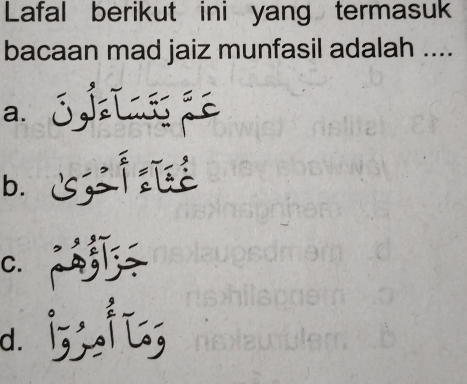 Lafal berikut ini yang termasuk
bacaan mad jaiz munfasil adalah ....
a. عَمَّ يَتَسَآءَلُونَ
b. غُثَآءً أَحْوَىٰ
c. جَزَآؤُهُمْ
d. وَمَآ أُمِرُوٓا۟